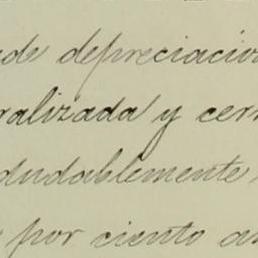 de depreciacion
ralizada y cer
dudablemente
por ciento an